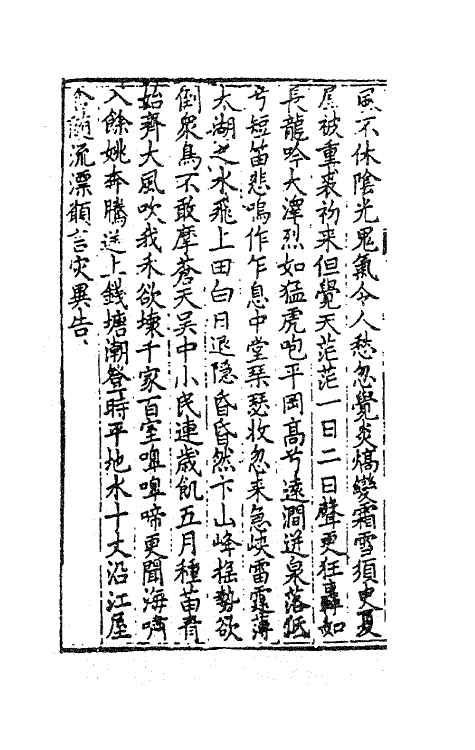 風不休陰光鬼氣令人愁忽覺炎熇變霜雪須臾夏
屋被重裘初来但覺天茫茫一日二日聲更狂轟如
長龍吟大澤烈如猛虎咆平岡高兮遠澗逆泉落低
兮短笛悲嗚作乍息中堂琴瑟收忽来急峽雷霆薄
太湖之水飛上田白日退隐昏昏然卞山峰揺勢欲
倒衆鳥不敢摩蒼天吴中小民連歲飢五月種苗青
始齊大風吹我禾欲壊千家百室啤啤啼更聞海嘯
入餘姚奔騰送上錢塘潮登時平地水十丈沿江屋
舍隨流漂願言灾異告